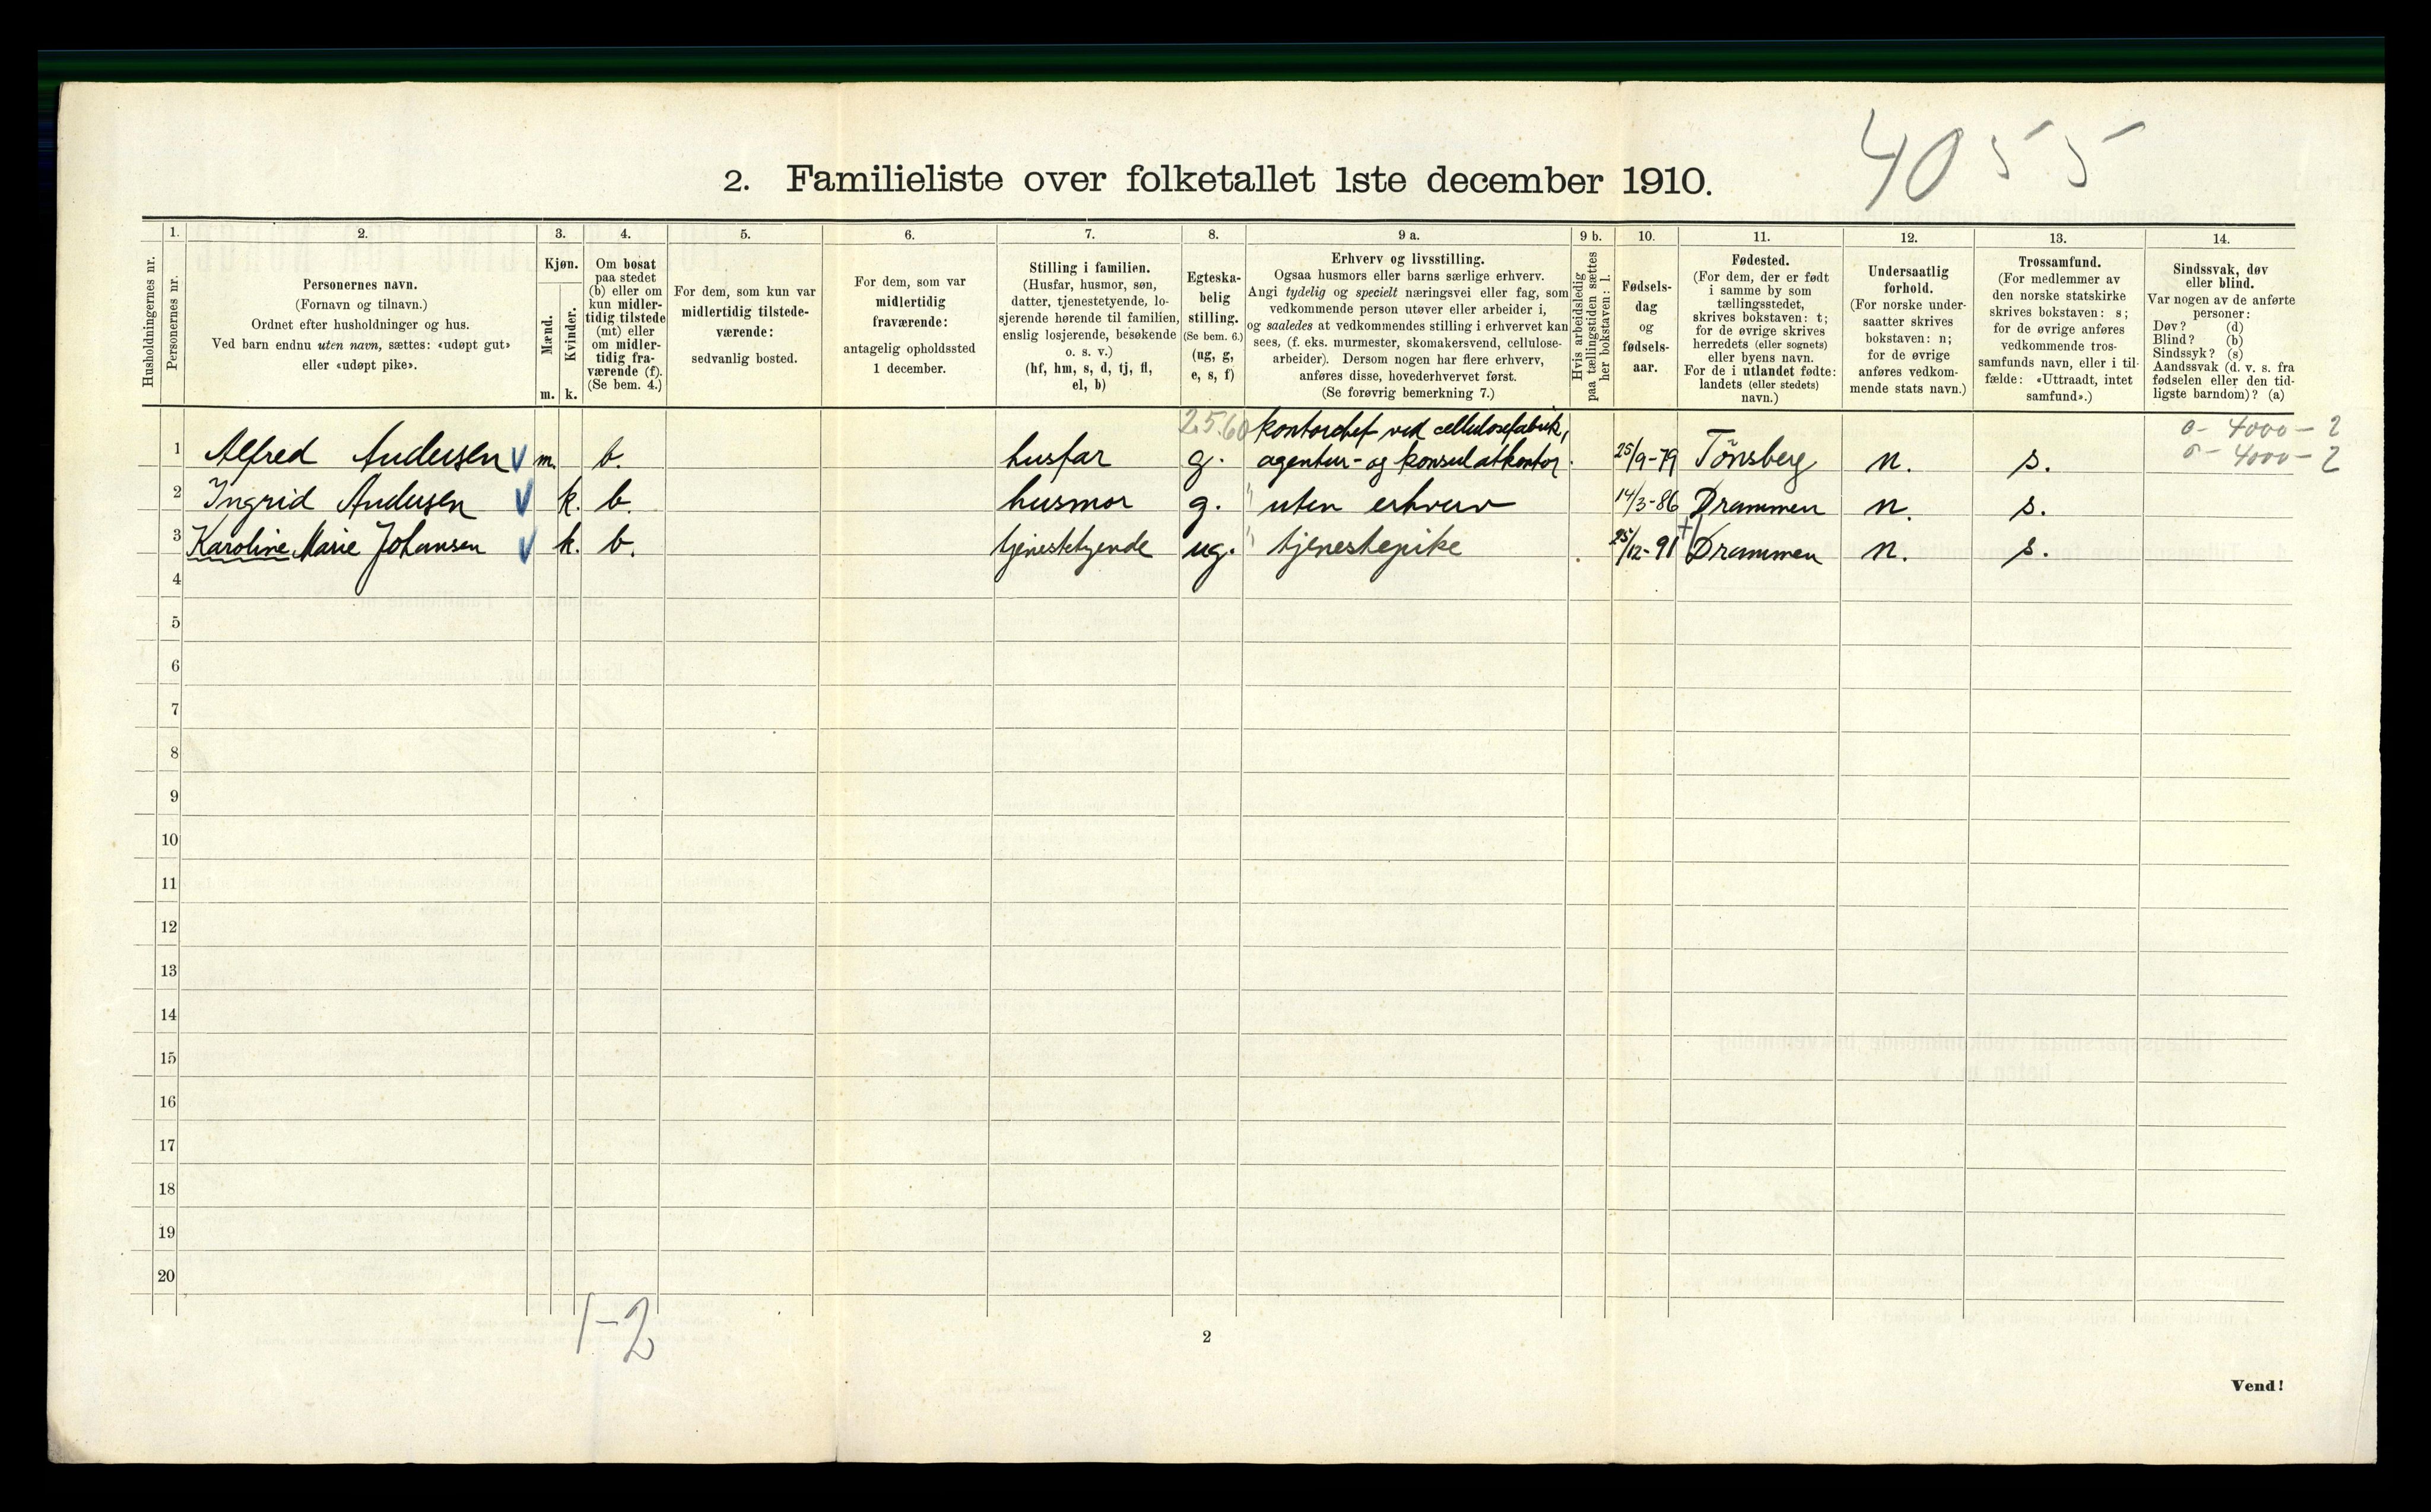 4055
2. Familieliste over folketallet 1ste december 1910.
Husholdningernes nr.
1.
Personernes nr.
2.
Personernes navn.
(Fornavn og tilnavn.)
Ordnet efter husholdninger og hus.
Ved barn endnu uten navn, sættes: «udøpt gut»
eller «udøpt pike».
3.
Kjøn.
Mænd.
Kvinder.
m. k.
4.
Om bosat
paa stedet
(b) eller om
kun midler-
tidig tilstede
(mt) eller
om midler-
tidig fra-
værende (f).
(Se bem. 4.)
5.
For dem, som kun var
midlertidig tilstede-
værende:
sedvanlig bosted.
6.
For dem, som var
midlertidig
fraværende:
antagelig opholdssted
1 december.
7.
Stilling i familien.
(Husfar, husmor, søn,
datter, tjenestetyende, lo-
sjerende hørende til familien,
enslig losjerende, besøkende
o. s. v.)
(hf, hm, s, d, tj, fl,
el, b)
8.
Egteska-
belig
stilling.
(Se bem. 6.)
(ug, g,
e, s, f)
9 a.
Erhverv og livsstilling.
Ogsaa husmors eller barns særlige erhverv.
Angi tydelig og specielt næringsvei eller fag, som
vedkommende person utøver eller arbeider i,
og saaledes at vedkommendes stilling i erhvervet kan
sees, (f. eks. murmester, skomakersvend, cellulose-
arbeider). Dersom nogen har flere erhverv,
anføres disse, hovederhvervet først.
(Se forøvrig bemerkning 7.)
9 b.
Hvis arbeidsledig
paa tællingstiden sættes
her bokstaven: l.
10.
Fødsels-
dag
og
fødsels-
aar.
11.
Fødested.
(For dem, der er født
i samme by som
tællingsstedet,
skrives bokstaven: t;
for de øvrige skrives
herredets (eller sognets)
eller byens navn.
For de i utlandet fødte:
landets (eller stedets)
navn.)
12.
Undersaatlig
forhold.
(For norske under-
saatter skrives
bokstaven: n;
for de øvrige
anføres vedkom-
mende stats navn.)
13.
Trossamfund.
(For medlemmer av
den norske statskirke
skrives bokstaven: s;
for de øvrige anføres
vedkommende tros-
samfunds navn, eller i til-
fælde: «Uttraadt, intet
samfund».)
14.
Sindssvak, døv
eller blind.
Var nogen av de anførte
personer:
Døv? (d)
Blind? (b)
Sindssyk? (s)
Aandssvak (d. v. s. fra
fødselen eller den tid-
ligste barndom)? (a)
25.60 kontorchef ved cellulosefabrik, 0- 4000-2
1 Alfred Andersen V m. b. husfar g. agentur- og konsulatkontor. 25/9-79 Tönsberg n. s. 0- 4000-2
2 Ingrid Andersen V k. b. husmor g. " uten erhverv 14/3-86 Drammen n. s.
3 Karoline Marie Johansen V k. b. tjenestetyende ug. " tjenestepike 25/12-91 Drammen n. s.
4
5
6
7
8
9
10
11
12
13
14
15
16
17
18
19
20
1-2
2
Vend!